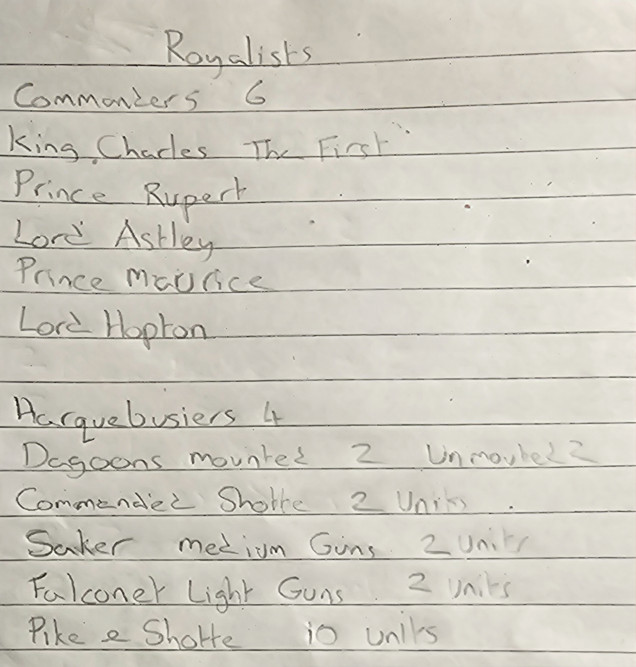 Royalists
Commanders 6
King Charles The First
Prince Rupert
Lord Astley
Prince Maurice
Lord Hopton
Harquebusiers 4
Dagoons mounted 2 Unmouted 2
Commanded Shotte 2 Units
Saker medium Guns 2 Units
Falconet Light Guns 2 Units
Pike e Shotte 10 units